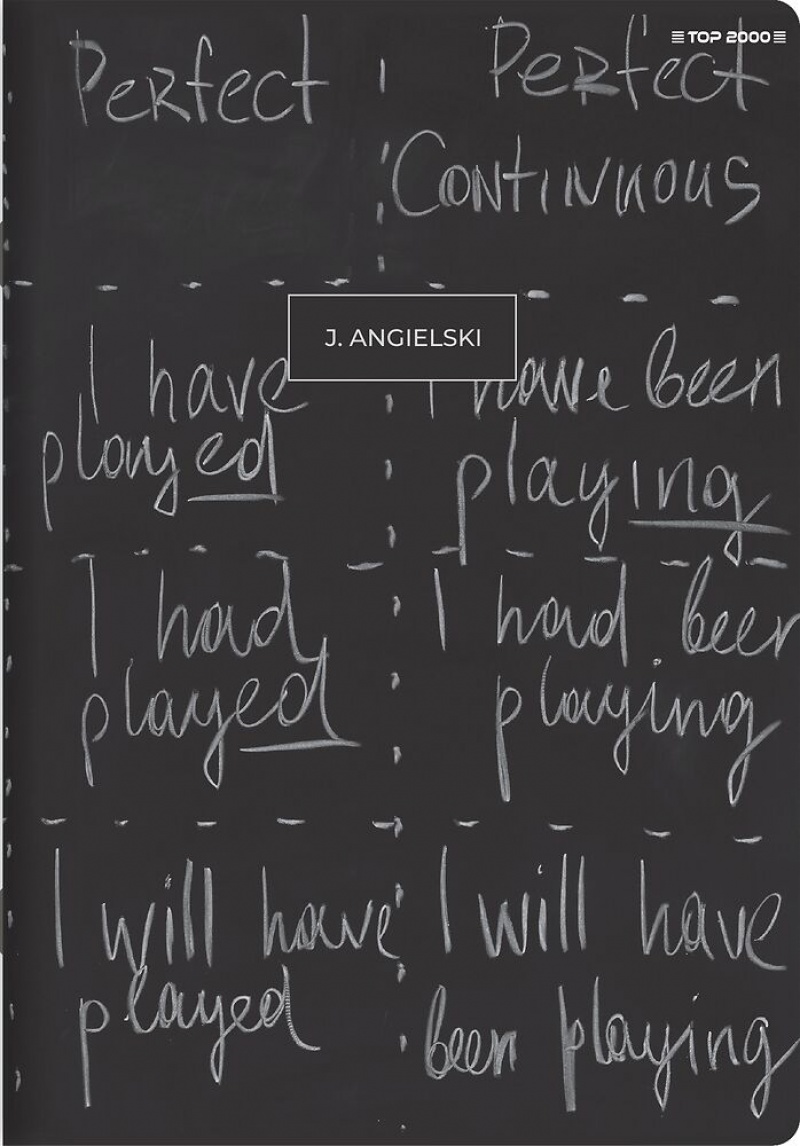 TOP 2000
Perfect
Perfect
Continuous
J. ANGIELSKI
I have
played
I have been
playing
I had
played
I had been
playing
I will have
played
I will have
been playing